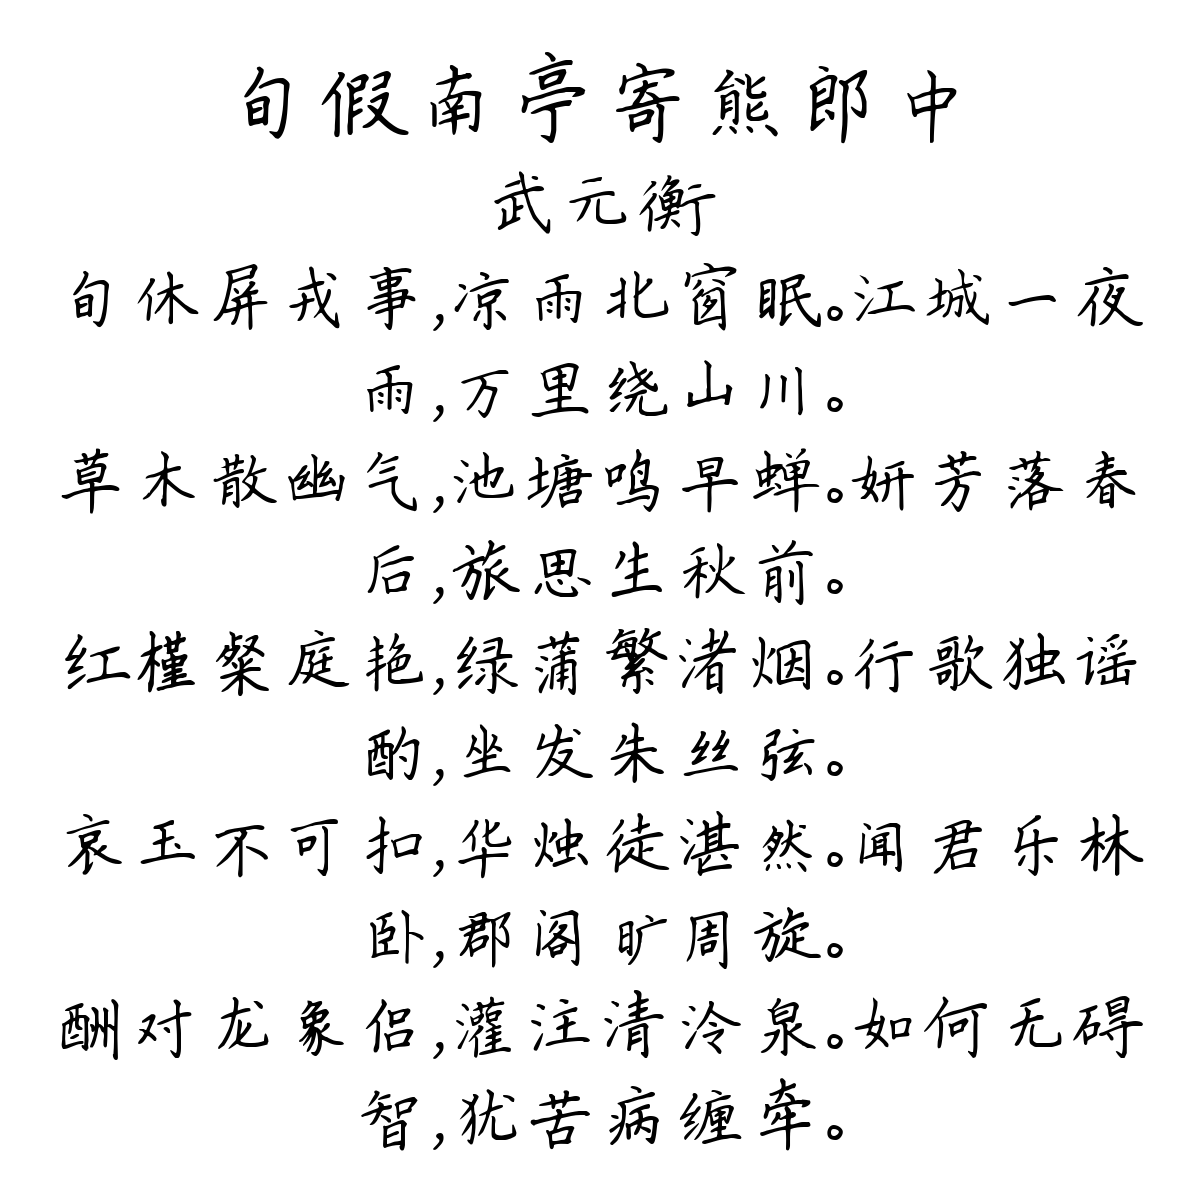 旬假南亭寄熊郎中
武元衡
旬休屏戎事,凉雨北窗眠。江城一夜
雨,万里绕山川。
草木散幽气,池塘鸣早蝉。妍芳落春
后,旅思生秋前。
红槿粲庭艳,绿蒲繁渚烟。行歌独谣
酌,坐发朱丝弦。
哀玉不可扣,华烛徒湛然。闻君乐林
卧,郡阁旷周旋。
酬对龙象侣,灌注清泠泉。如何无碍
智,犹苦病缠牵。